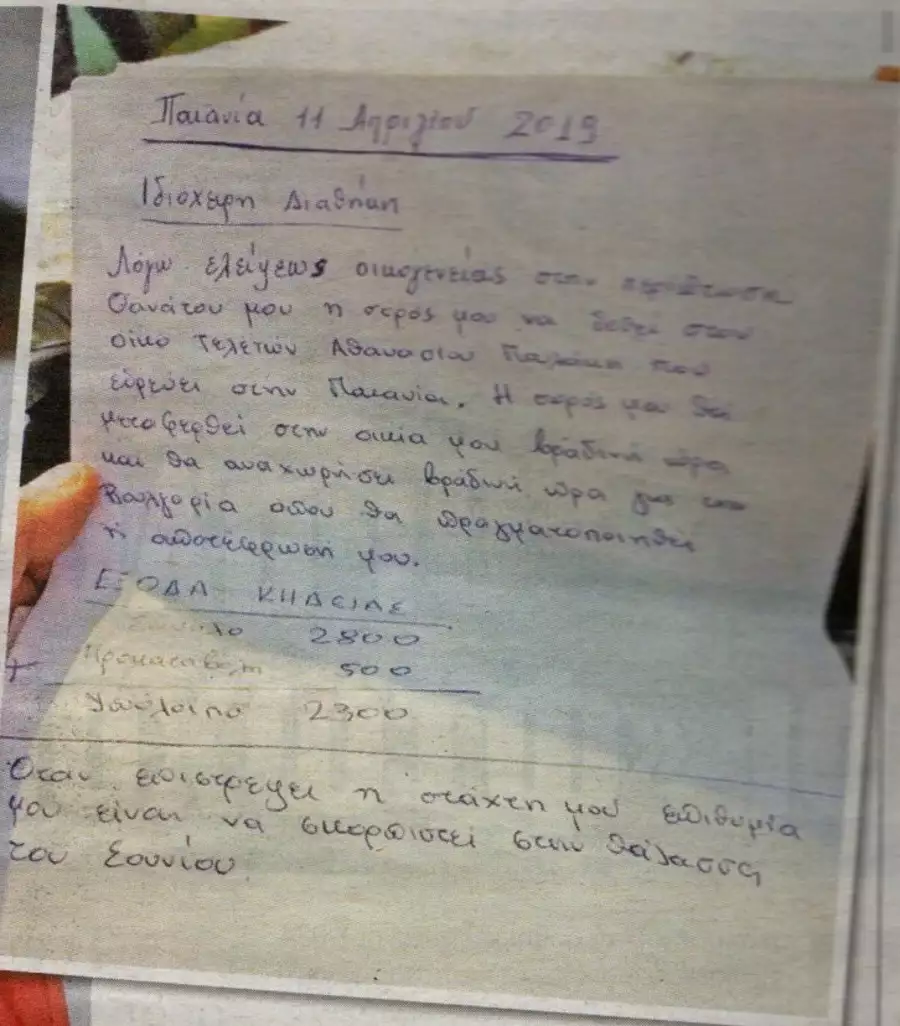 Παιανία 11 Απριλίου 2019
Ιδιόχειρη Διαθήκη
Λόγω ελείψεως οικογενείας στην περίπτωση
Θανάτου μου η σορός μου να δοθεί στον
οίκο τελετών Αθανασίου που
εδρεύει στην Παιανία. Η σορός μου θα
μεταφερθεί στην οικία μου βράδυνή ώρα
και θα αναχωρήσει βράδυνή ώρα για την
Βουλγαρία οπου θα πραγματοποιηθεί
η αποτέφρωσή μου.
ΕΞΟΔΑ ΚΗΔΕΙΑΣ
Σύνολο 2800
Προκαταβολή 500
Υπόλοιπο 2300
Οταν επιστρέψει η στάχτη μου επιθυμία
μου είναι να σκορπιστεί στην θάλασσα
του Σουνίου